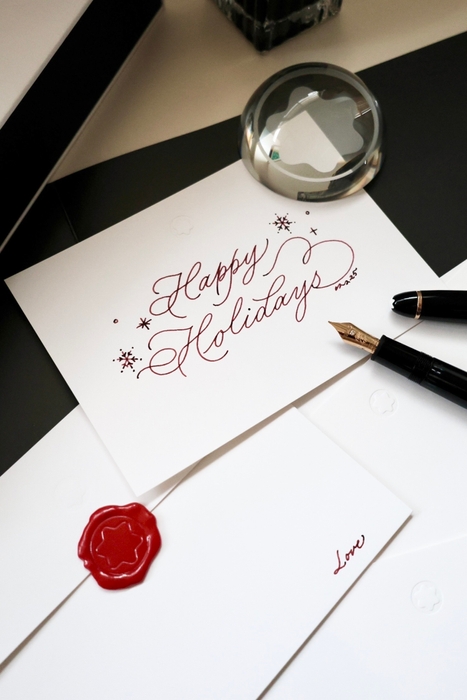 Happy
Holidays
Love